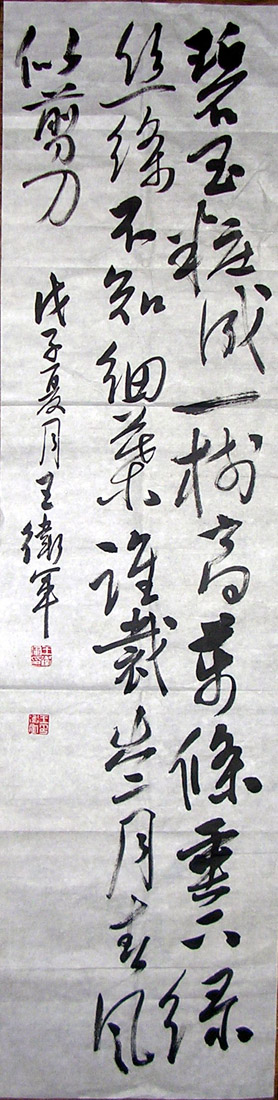 碧玉粧成一树高萬條垂下绿
丝絛不知細葉誰裁出二月春风
似剪刀
戊子夏月王衛军